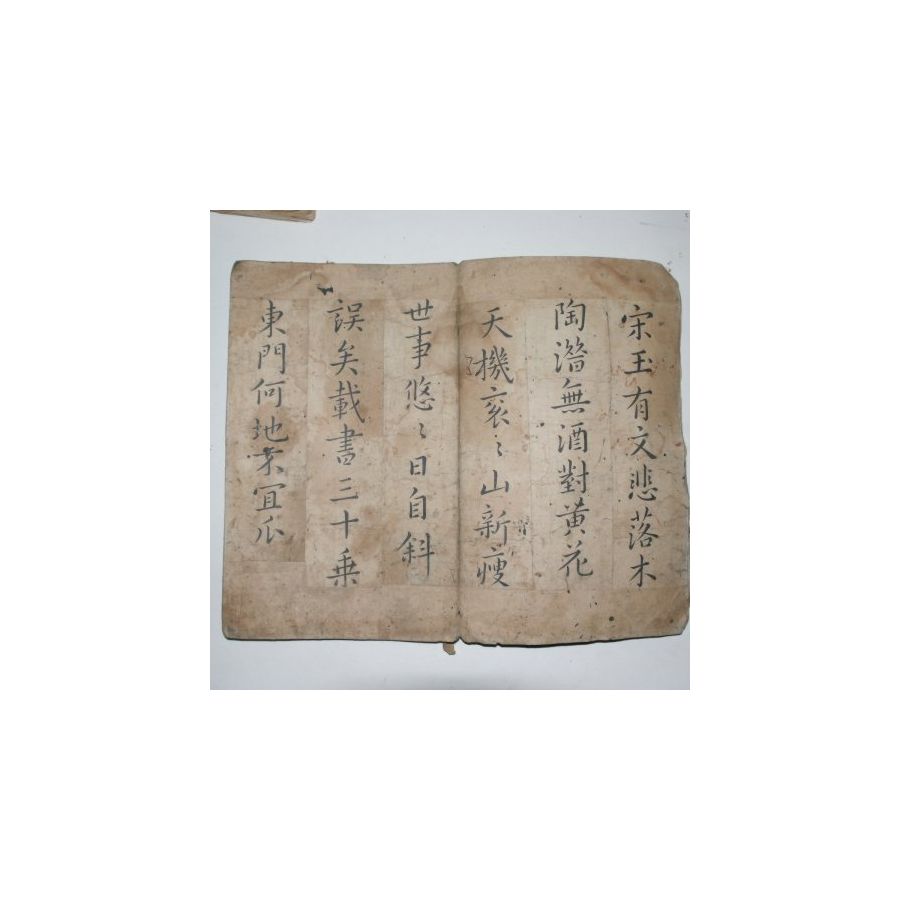 宋玉有文悲落木
陶潛無酒對黃花
天機袞〻山新瘦
世事悠〻日自斜
誤矣載書三十乗
東門何地不宜瓜